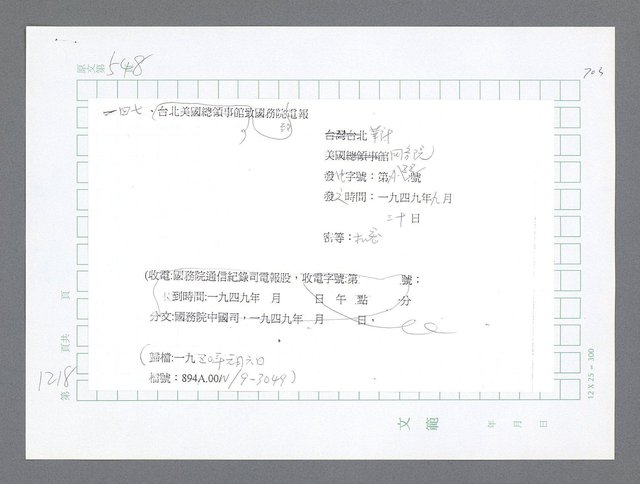 原文第548
703
一四七、台北美國總領事館致國務院電報
台灣台北華府
美國總領事館國務院
發文字號：第 號
發文時間：一九四九年九月
三十日
密等：機密
(收電:國務院通信紀錄司電報股，收電字號:第 號：
收到時間:一九四九年 月 日 午 點 分
分文:國務院中國司，一九四九年 月 日，
(歸檔:一九五〇年元月六日
檔號：894A.00/ /9-3049)
第1218頁共 頁
12 X 25 = 300
文範
年 月 日